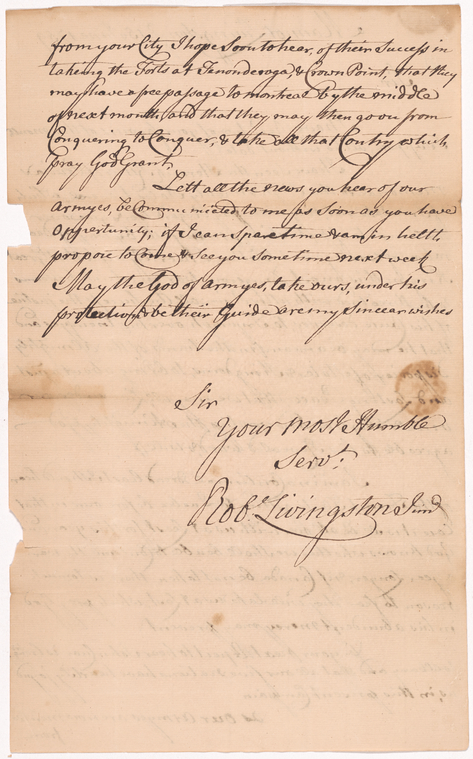 from your City I hope Soon to hear, of their Success in
takeing the Forts at Tenonderoga, & Crown Point, that they
may have a free passage to montreal by the middle
of next month, and that they may then go on from
Conquering to Conquer, & take all that Contry which
I pray God Grant,
Lett all the news you hear of our
armyes, be Communicated to me, as soon as you have
Oppertunity; if I can spare time & am in helth
propose to Come & see you some time next week
May the God of armyes, take ours, under his
protection & be their Guide are my Sincear wishes
Sir
Your most Humble
Servt.
Robt. Livingston Junr